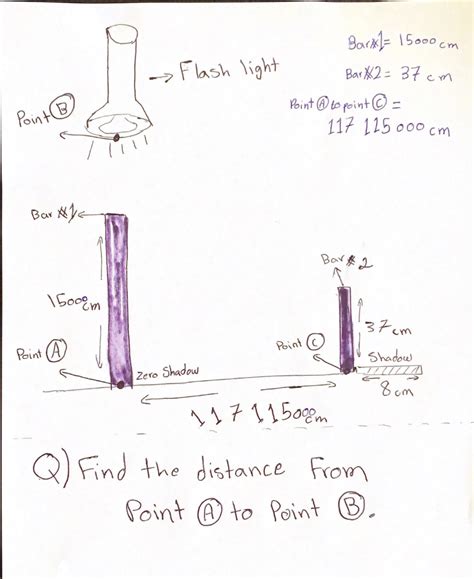 Bar#1= 15000 cm
Bar#2= 37 cm
Point Ⓐ to point Ⓒ =
117 115 000 cm
→ Flash light
Point Ⓑ
Bar #1
15000 cm
Point Ⓐ
Zero Shadow
Bar #2
37 cm
Point Ⓒ
Shadow
8 cm
117 115000 cm
Q) Find the distance From
Point Ⓐ to Point Ⓑ.